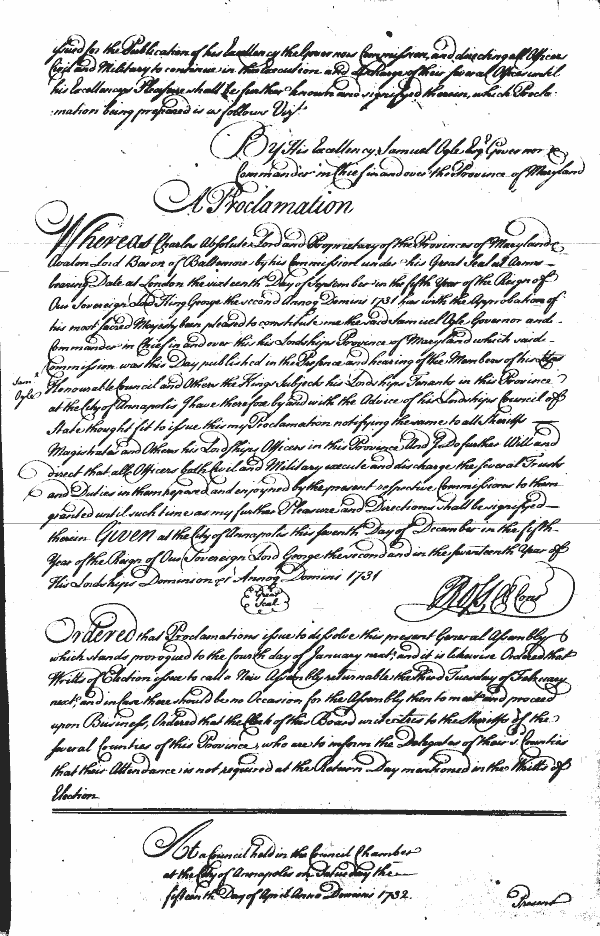 issued for the Publication of his Excellency the Governors Commission, and directing all Officers
Civil and Military to continue in the Execution and discharge of their several Offices until
his Excellencys Pleasure shall be further known and signifyed therein, which Procla-
mation being prepared is as follows Viz.t
By His Excellency Samuel Ogle Esq.r Governor &
Commander in Chief in and over the Province of Maryland
A Proclamation
Whereas Charles Absolute Lord and Proprietary of the Provinces of Maryland &
Avalon Lord Baron of Baltimore by his Commission under his Great Seal at Arms
bearing Date at London the sixteenth Day of September in the fifth Year of the Reign of
Our Sovereign Lord King George the second Annoq Domini 1731 has with the Approbation of
his most sacred Majesty been pleased to constitute me the said Samuel Ogle Governor and
Commander in Chief in and over this his Lordships Province of Maryland which said
Commission was this Day published in the Presence and hearing of the Members of his Ldps
Sam.l
Ogle
Honourable Council and Others the Kings Subjects his Lordships Tenants in this Province
at the City of Annapolis I have therefore by and with the Advice of his Lordships Council of
State thought fit to issue this my Proclamation notifying the same to all Sheriffs
Magistrates and Others his Lordships Officers in this Province And I do further Will and
direct that all Officers both Civil and Military execute and discharge the several Trusts
and Duties in them reposed and enjoyned by the present respective Commissions to them
granted until such time as my further Pleasure and Directions shall be signifyed
therein Given at the City of Annapolis this seventh Day of December in the fifth
Year of the Reign of Our Sovereign Lord George the second and in the seventeenth Year of
His Lordships Dominion &c.a Annoq Domini 1731
Great
Seal
Ordered that Proclamations issue to dissolve this present General Assembly
which stands prorogued to the fourth day of January next; and it is likewise Ordered that
Writts of Election issue to call a New Assembly returnable the third Tuesday of February
next; and in Case there should be no Occasion for the Assembly then to meet and proceed
upon Business, Ordered that the Clerk of this Board writes to the Sheriffs of the
several Counties of this Province, who are to inform the Delegates of their s.d Counties
that their Attendance is not required at the Return Day mentioned in the Writts of
Election
At a Council held in the Council Chamber
at the City of Annapolis on Saturday the
fifteenth Day of April Anno Domini 1732.
Present